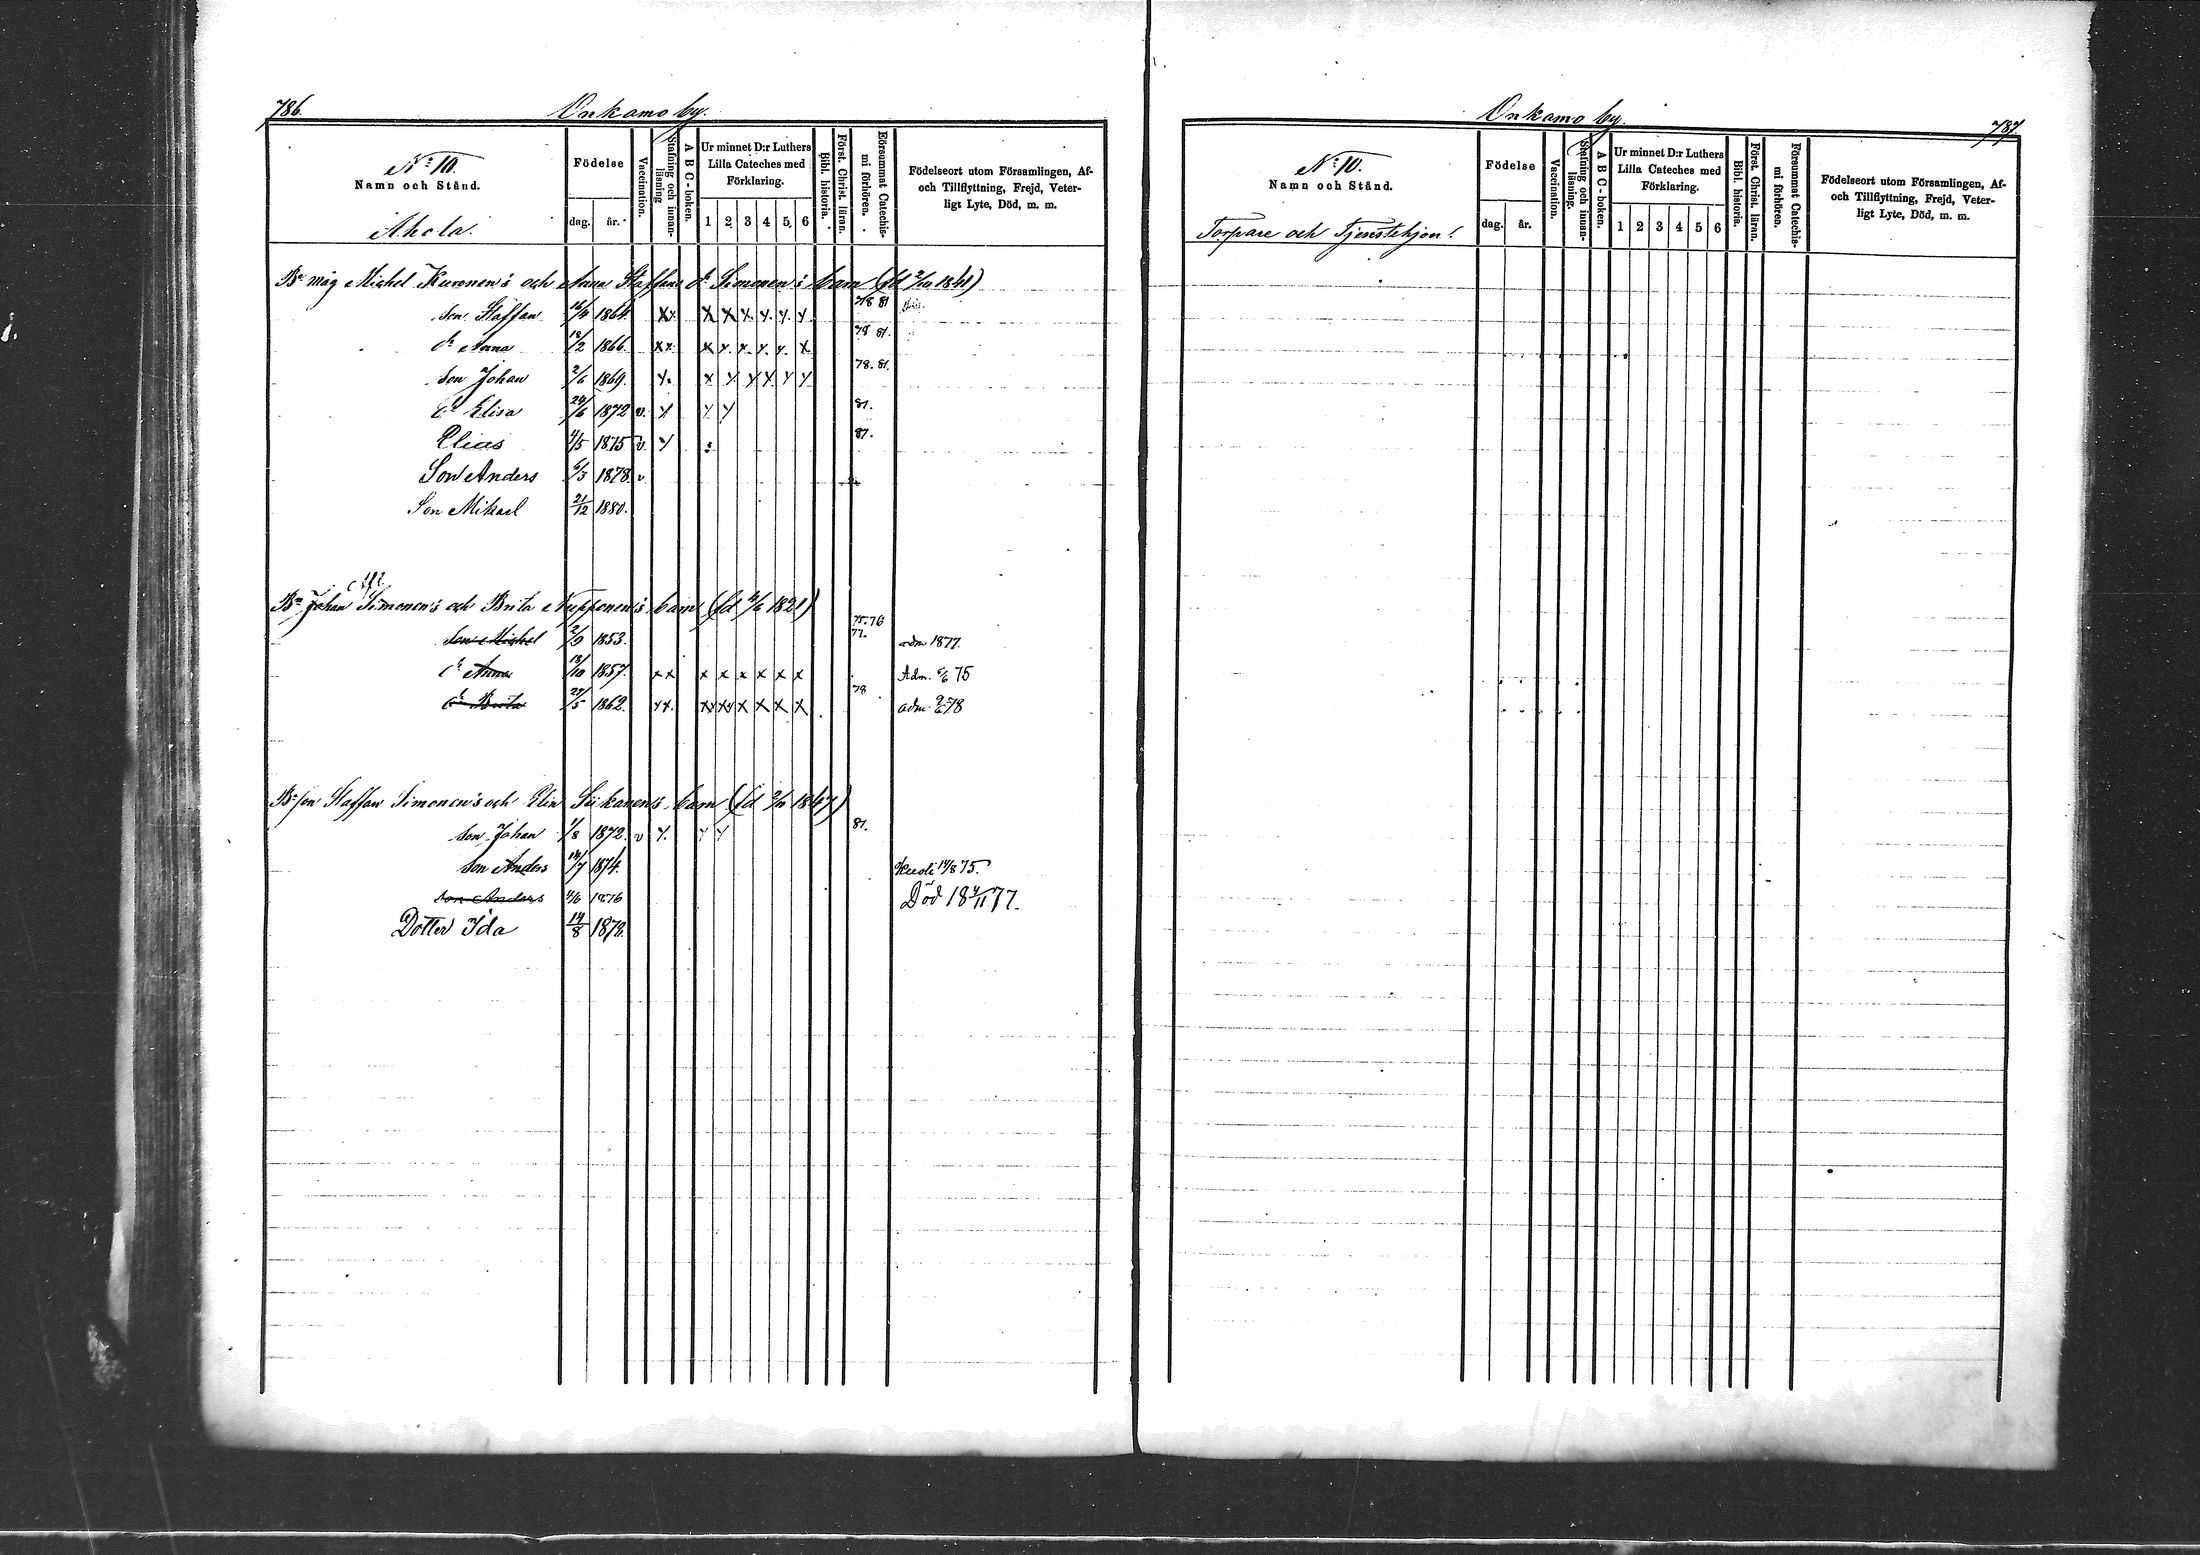 786.
Onkamo by.
N:o 10.
Namn och Stånd.
Ahola.
Födelse
dag. år.
Vaccination.
Stafning och innan-läsning
A B C-boken.
Ur minnet D:r Luthers
Lilla Cateches med
Förklaring.
1 2 3 4 5 6
Bibl. historia.
Först. Christ. läran.
Försummat Catechis-mi förhören.
Födelseort utom Församlingen, Af-
och Tillflyttning, Frejd, Veter-
ligt Lyte, Död, m. m.
Bd måg Michel Kuronen's och Anna Staffans dr Simonen's barn (fd 2/10 1841)
Son Staffan 16/4 1864. xx x x x y. y. y. 78 81
dr Anna 12/2 1866. xx x y. y. y. y. x 79 81.
Son Johan 2/6 1869. y. x y y y y y 78. 81.
dr Elisa 24/6 1872 v. y y y 81.
Elias 4/5 1875 v. y 81.
Son Anders 6/3 1878. v
Son Mikael 21/12 1880.
Bn Johan Simonen's och Brita Nupponen's barn (fd 2/6 1821)
Son Michel 2/9 1853. 75. 76 77. adm 1877.
dr Anna 18/10 1857. xx x x x x x x Adm. 6/6 75
dr Brita 27/5 1862. yx. xx xx x x x x 78 adm. 9/6 78
Bd son Staffan Simonen's och Elin Siikanen's barn (fd 2/11 1847)
Son Johan 1/8 1872. v y. y y 81.
Son Anders 14/7 1874. kuoli 14/8 75.
Son Anders 4/6 1876 Död 18 4/11 77.
Dotter Ida 14/8 1878.
Onkamo by.
787
N:o 10.
Namn och Stånd.
Torpare och Tjenstehjon!
Födelse
dag. år.
Vaccination.
Stafning och innan-läsning.
A B C-boken.
Ur minnet D:r Luthers
Lilla Cateches med
Förklaring.
1 2 3 4 5 6
Bibl. historia.
Först. Christ. läran.
Försummat Catechis-mi förhören.
Födelseort utom Församlingen, Af-
och Tillflyttning, Frejd, Veter-
ligt Lyte, Död, m. m.